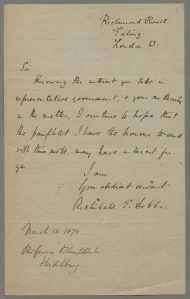 Richmond Road
Ealing
London W.
Sir
Knowing the interest you take in
representative government, & your authority
in the matter, I venture to hope that
the pamphlet I have the honour to send
with this note, may have interest for
you
I am
Your obedient servant
Archibald E. Dobbs
March 10. 1872.
Professor Bluntschli
Heidelberg